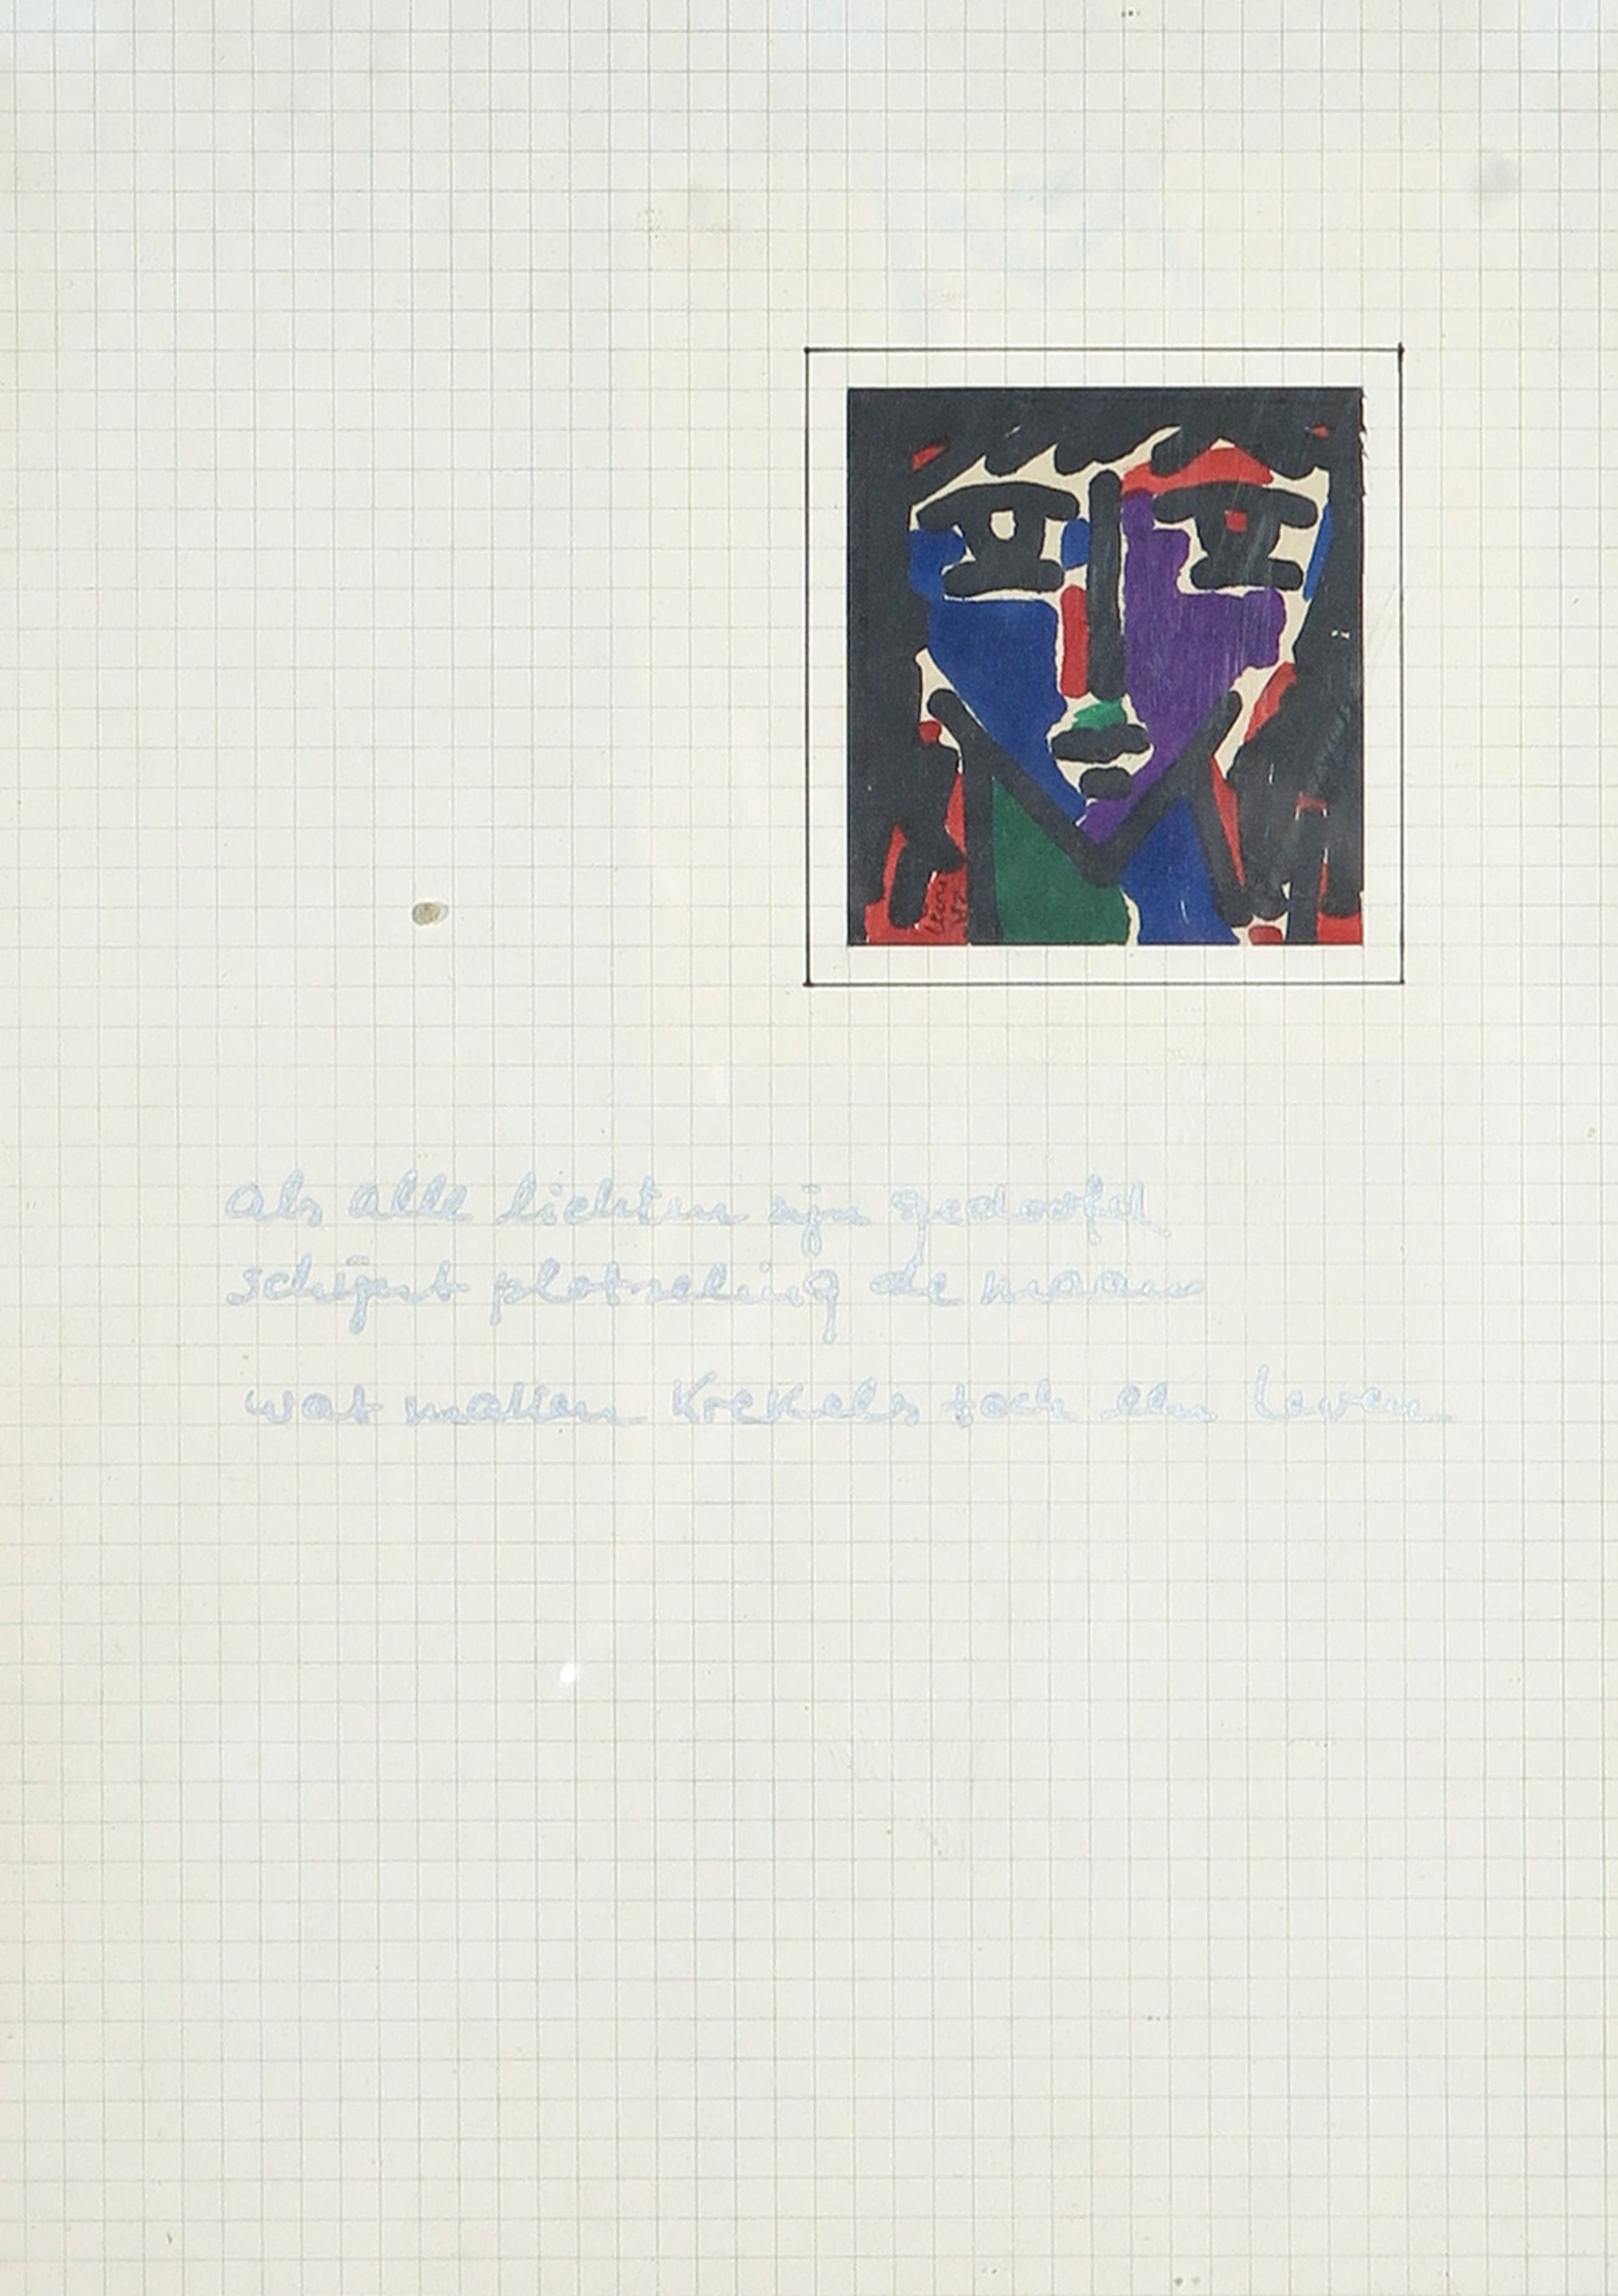 als alle lichten zijn gedoofd
schijnt plotseling de maan
wat maken Krekels toch een leven